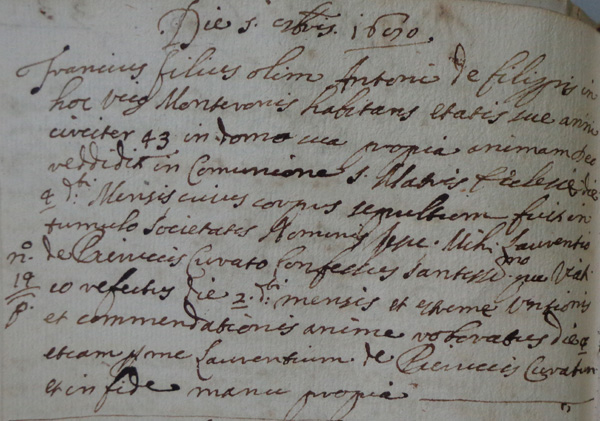 Die 5. ctbris. 1670.
Francius filius olim Antoni de filippis in
hoc Montevonis habitans etatis sue anni
circiter 43 in domo sua propia animam deo
reddidit in Comunione s. Matris Eclesie die
4 dti Mensis cuius corpus sepultum fuit in
tumulo Societatis Nominis Jesu. Mihi Laurentio
de Curato Confessus santissmo que Viati
co refectus die 2. dti mensis et estreme Untionis
et commendationis anime roboratus die 4
etiam p me Laurentium de Curatum
et in fide manu propia
no.
19
P.